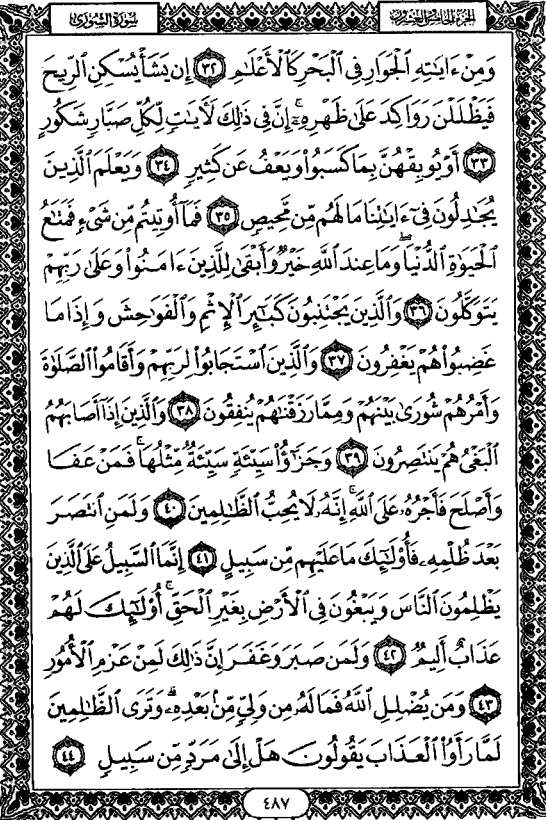 سورة الشورى
الجزء الخامس والعشرون
وَمِنْ ءَايَٰتِهِ ٱلْجَوَارِ فِى ٱلْبَحْرِ كَٱلْأَعْلَٰمِ ٣٢ إِن يَشَأْ يُسْكِنِ ٱلرِّيحَ
فَيَظْلَلْنَ رَوَاكِدَ عَلَىٰ ظَهْرِهِۦٓ ۚ إِنَّ فِى ذَٰلِكَ لَءَايَٰتٍ لِّكُلِّ صَبَّارٍ شَكُورٍ
٣٣ أَوْ يُوبِقْهُنَّ بِمَا كَسَبُوا۟ وَيَعْفُ عَن كَثِيرٍ ٣٤ وَيَعْلَمَ ٱلَّذِينَ
يُجَٰدِلُونَ فِىٓ ءَايَٰتِنَا مَا لَهُم مِّن مَّحِيصٍ ٣٥ فَمَآ أُوتِيتُم مِّن شَىْءٍ فَمَتَٰعُ
ٱلْحَيَوٰةِ ٱلدُّنْيَا ۖ وَمَا عِندَ ٱللَّهِ خَيْرٌ وَأَبْقَىٰ لِلَّذِينَ ءَامَنُوا۟ وَعَلَىٰ رَبِّهِمْ
يَتَوَكَّلُونَ ٣٦ وَٱلَّذِينَ يَجْتَنِبُونَ كَبَٰٓئِرَ ٱلْإِثْمِ وَٱلْفَوَٰحِشَ وَإِذَا مَا
غَضِبُوا۟ هُمْ يَغْفِرُونَ ٣٧ وَٱلَّذِينَ ٱسْتَجَابُوا۟ لِرَبِّهِمْ وَأَقَامُوا۟ ٱلصَّلَوٰةَ
وَأَمْرُهُمْ شُورَىٰ بَيْنَهُمْ وَمِمَّا رَزَقْنَٰهُمْ يُنفِقُونَ ٣٨ وَٱلَّذِينَ إِذَآ أَصَابَهُمُ
ٱلْبَغْىُ هُمْ يَنتَصِرُونَ ٣٩ وَجَزَٰٓؤُا۟ سَيِّئَةٍ سَيِّئَةٌ مِّثْلُهَا ۖ فَمَنْ عَفَا
وَأَصْلَحَ فَأَجْرُهُۥ عَلَى ٱللَّهِ ۚ إِنَّهُۥ لَا يُحِبُّ ٱلظَّٰلِمِينَ ٤٠ وَلَمَنِ ٱنتَصَرَ
بَعْدَ ظُلْمِهِۦ فَأُو۟لَٰٓئِكَ مَا عَلَيْهِم مِّن سَبِيلٍ ٤١ إِنَّمَا ٱلسَّبِيلُ عَلَى ٱلَّذِينَ
يَظْلِمُونَ ٱلنَّاسَ وَيَبْغُونَ فِى ٱلْأَرْضِ بِغَيْرِ ٱلْحَقِّ ۚ أُو۟لَٰٓئِكَ لَهُمْ
عَذَابٌ أَلِيمٌ ٤٢ وَلَمَن صَبَرَ وَغَفَرَ إِنَّ ذَٰلِكَ لَمِنْ عَزْمِ ٱلْأُمُورِ
٤٣ وَمَن يُضْلِلِ ٱللَّهُ فَمَا لَهُۥ مِن وَلِىٍّ مِّنۢ بَعْدِهِۦ ۗ وَتَرَى ٱلظَّٰلِمِينَ
لَمَّا رَأَوُا۟ ٱلْعَذَابَ يَقُولُونَ هَلْ إِلَىٰ مَرَدٍّ مِّن سَبِيلٍ ٤٤
٤٨٧